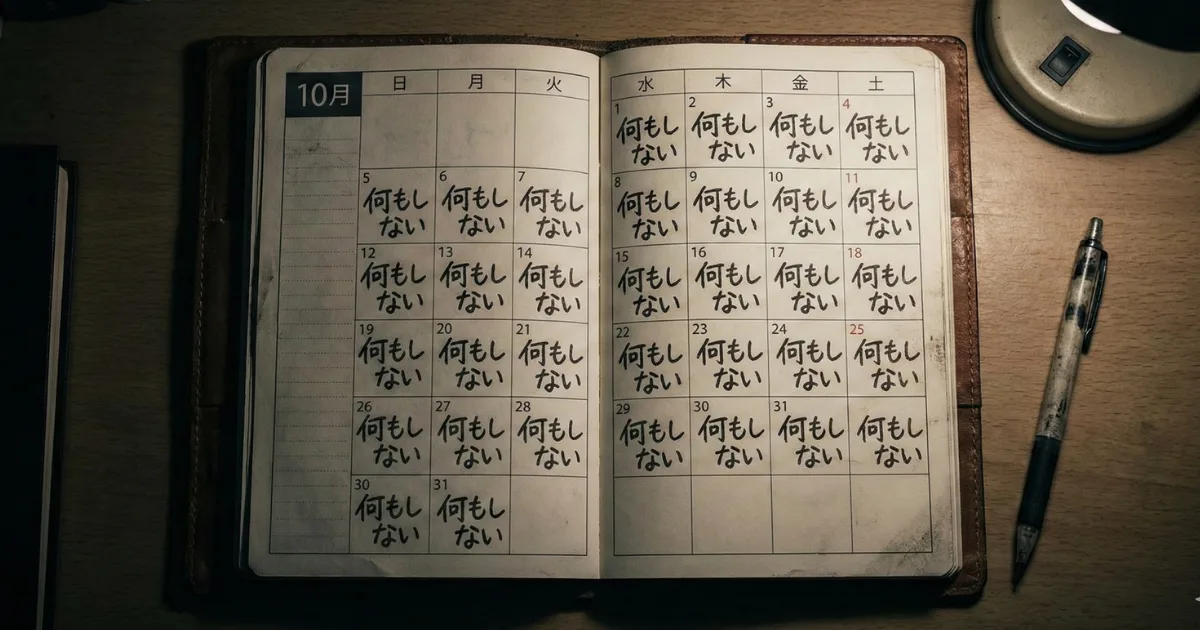 10月 日 月 火 水 木 金 土
1 2 3 4
何もし 何もし 何もし 何もし
ない ない ない ない
5 6 7 8 9 10 11
何もし 何もし 何もし 何もし 何もし 何もし 何もし
ない ない ない ない ない ない ない
12 13 14 15 16 17 18
何もし 何もし 何もし 何もし 何もし 何もし 何もし
ない ない ない ない ない ない ない
19 20 21 22 23 24 25
何もし 何もし 何もし 何もし 何もし 何もし 何もし
ない ない ない ない ない ない ない
26 27 28 29 30 31
何もし 何もし 何もし 何もし 何もし 何もし 何もし
ない ない ない ない ない ない ない
30 31
何もし 何もし
ない ない